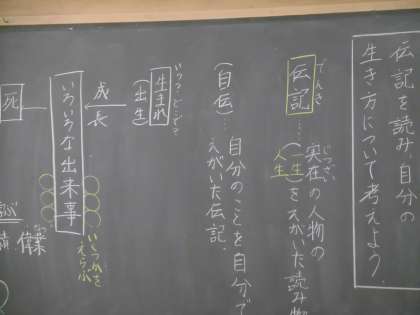 伝記を読み、自分の
生き方について考えよう。
でんき
伝記…実在の人物の
じつざい
(一生)をえがいた読み物
人生
(自伝)…自分のことを自分で
えがいた伝記。
いつ?どこで?
生まれ
(出生)
成長
いろいろな出来事
いくつかを
えらぶ
死
偉業